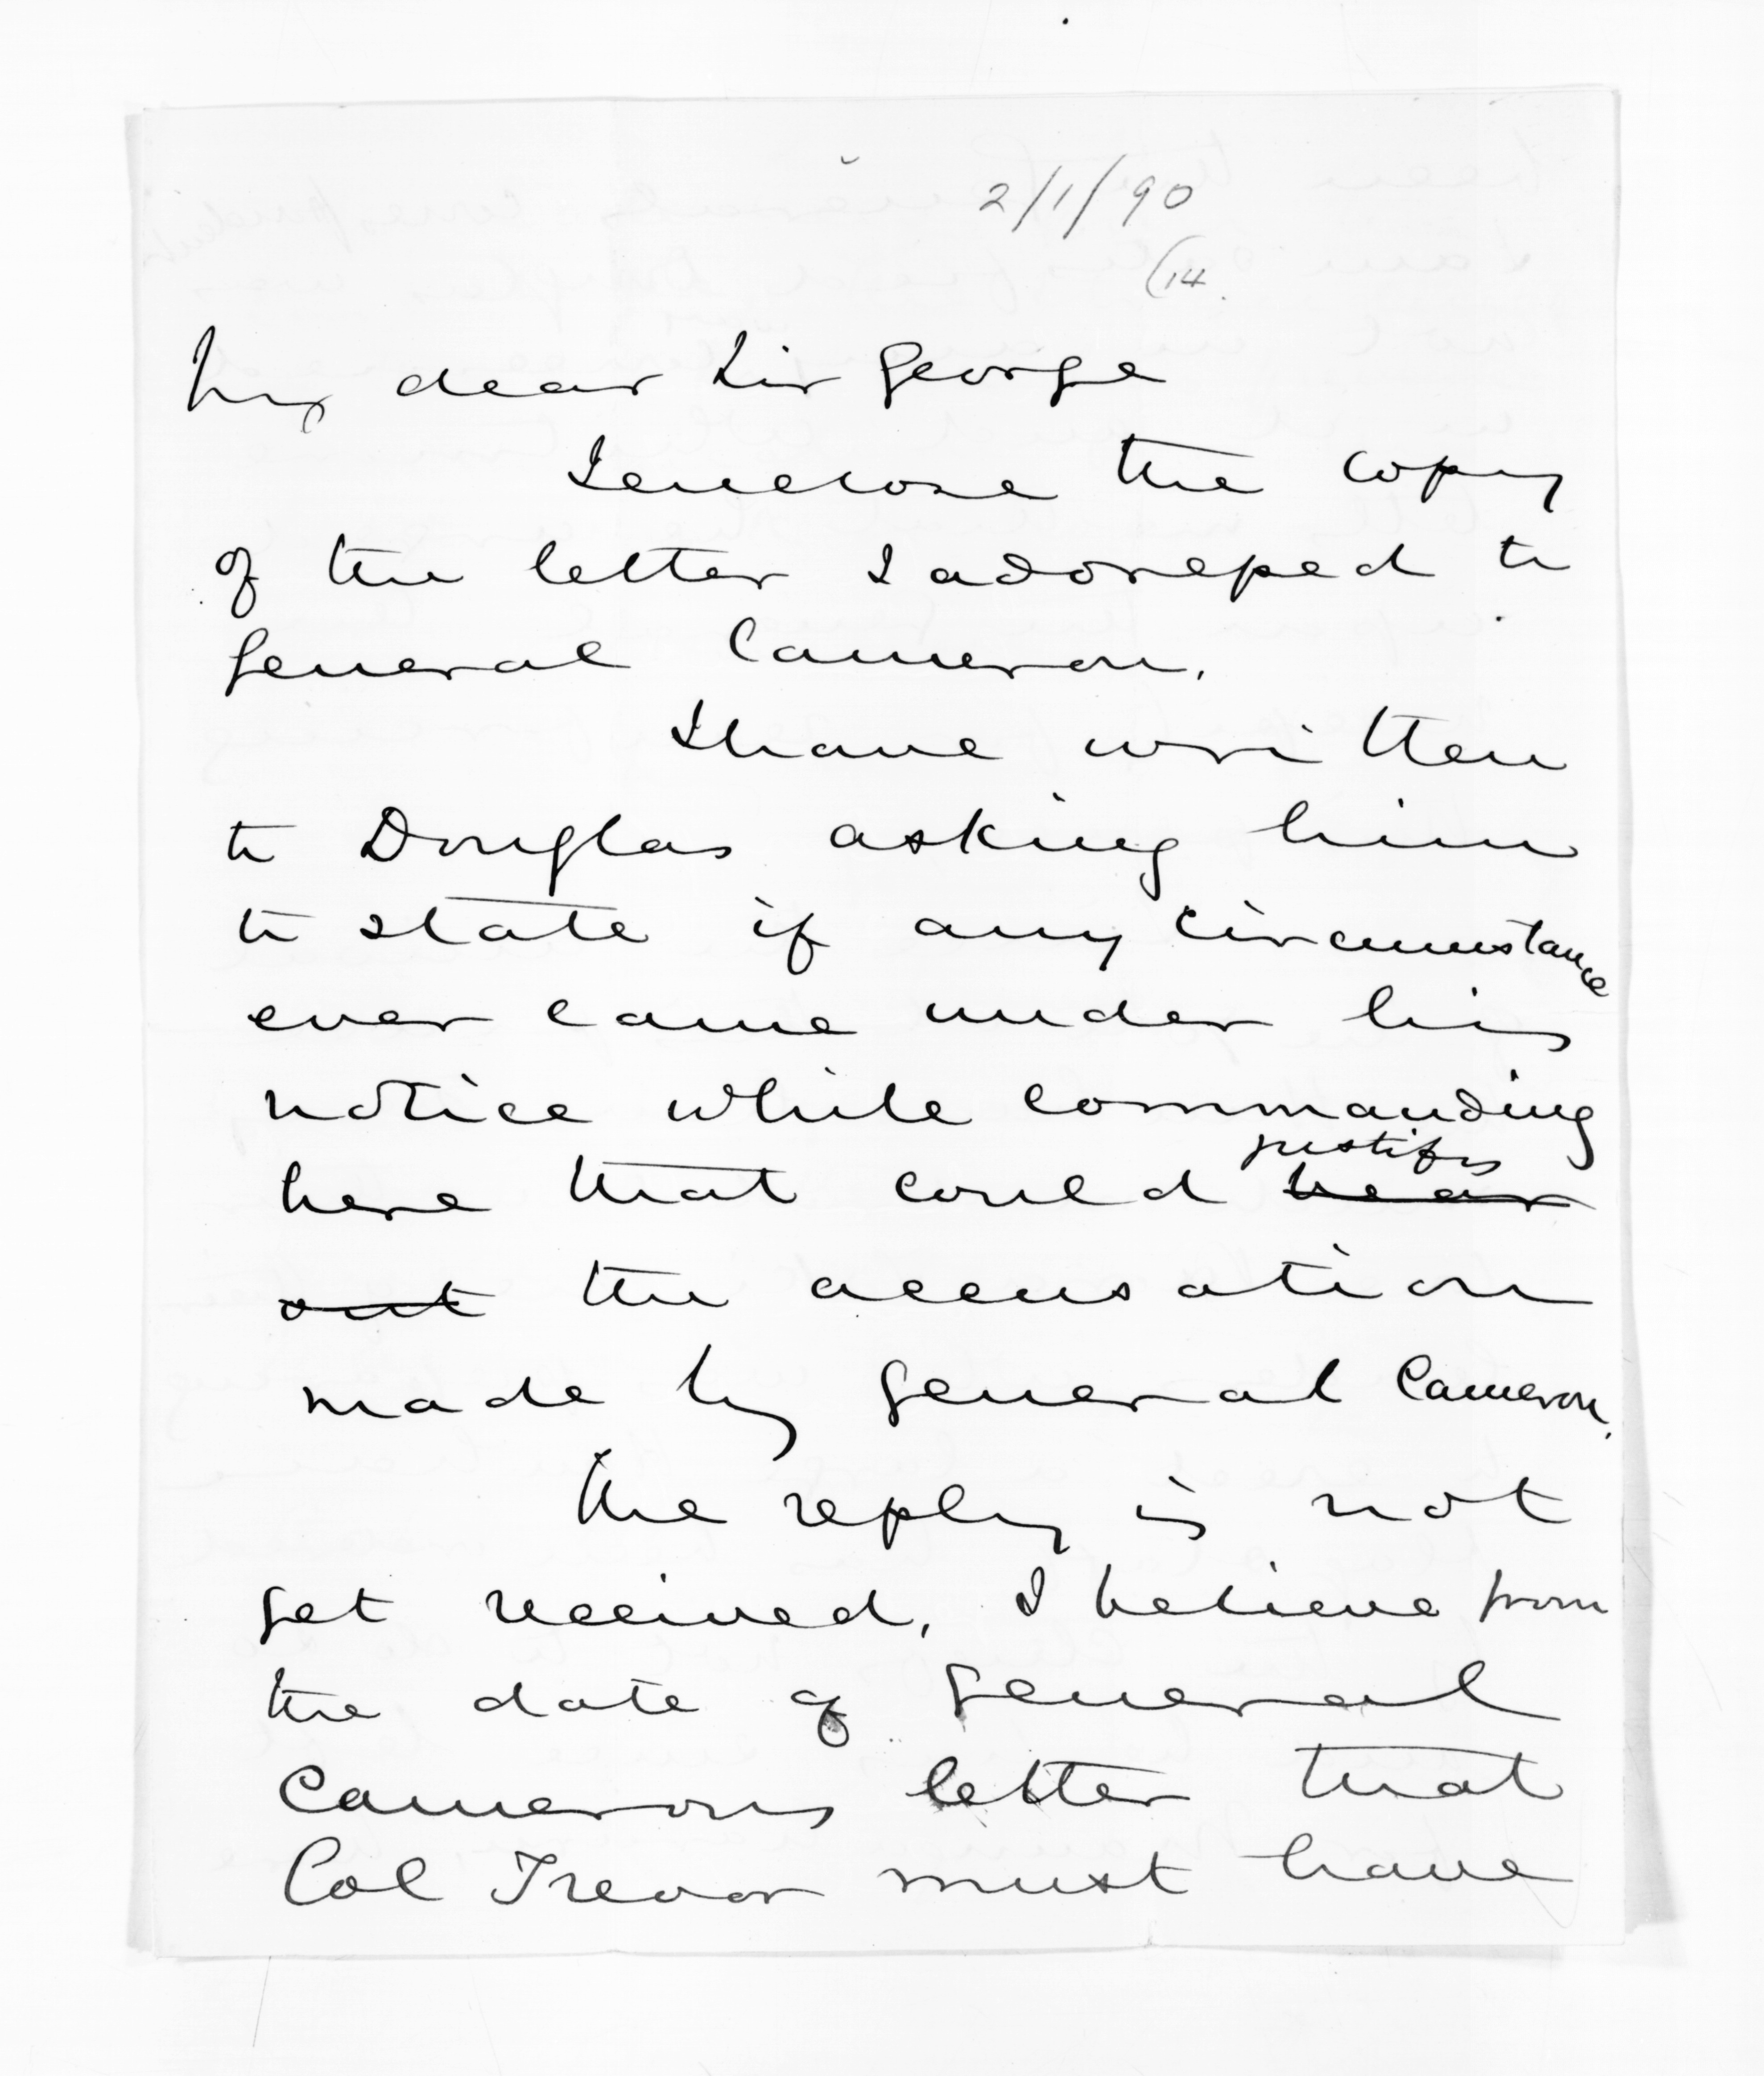 2/1/90
(14.
My dear Sir George
I enclose the copy
of the letter I addressed to
General Cameron.
I have written
to Douglas asking him
to state if any circumstance
ever came under his
notice while commanding
justify
here that could bear
out the accusation
made by General Cameron.
The reply is not
yet received, I believe from
the date of General
Camerons letter that
Col Trevor must have